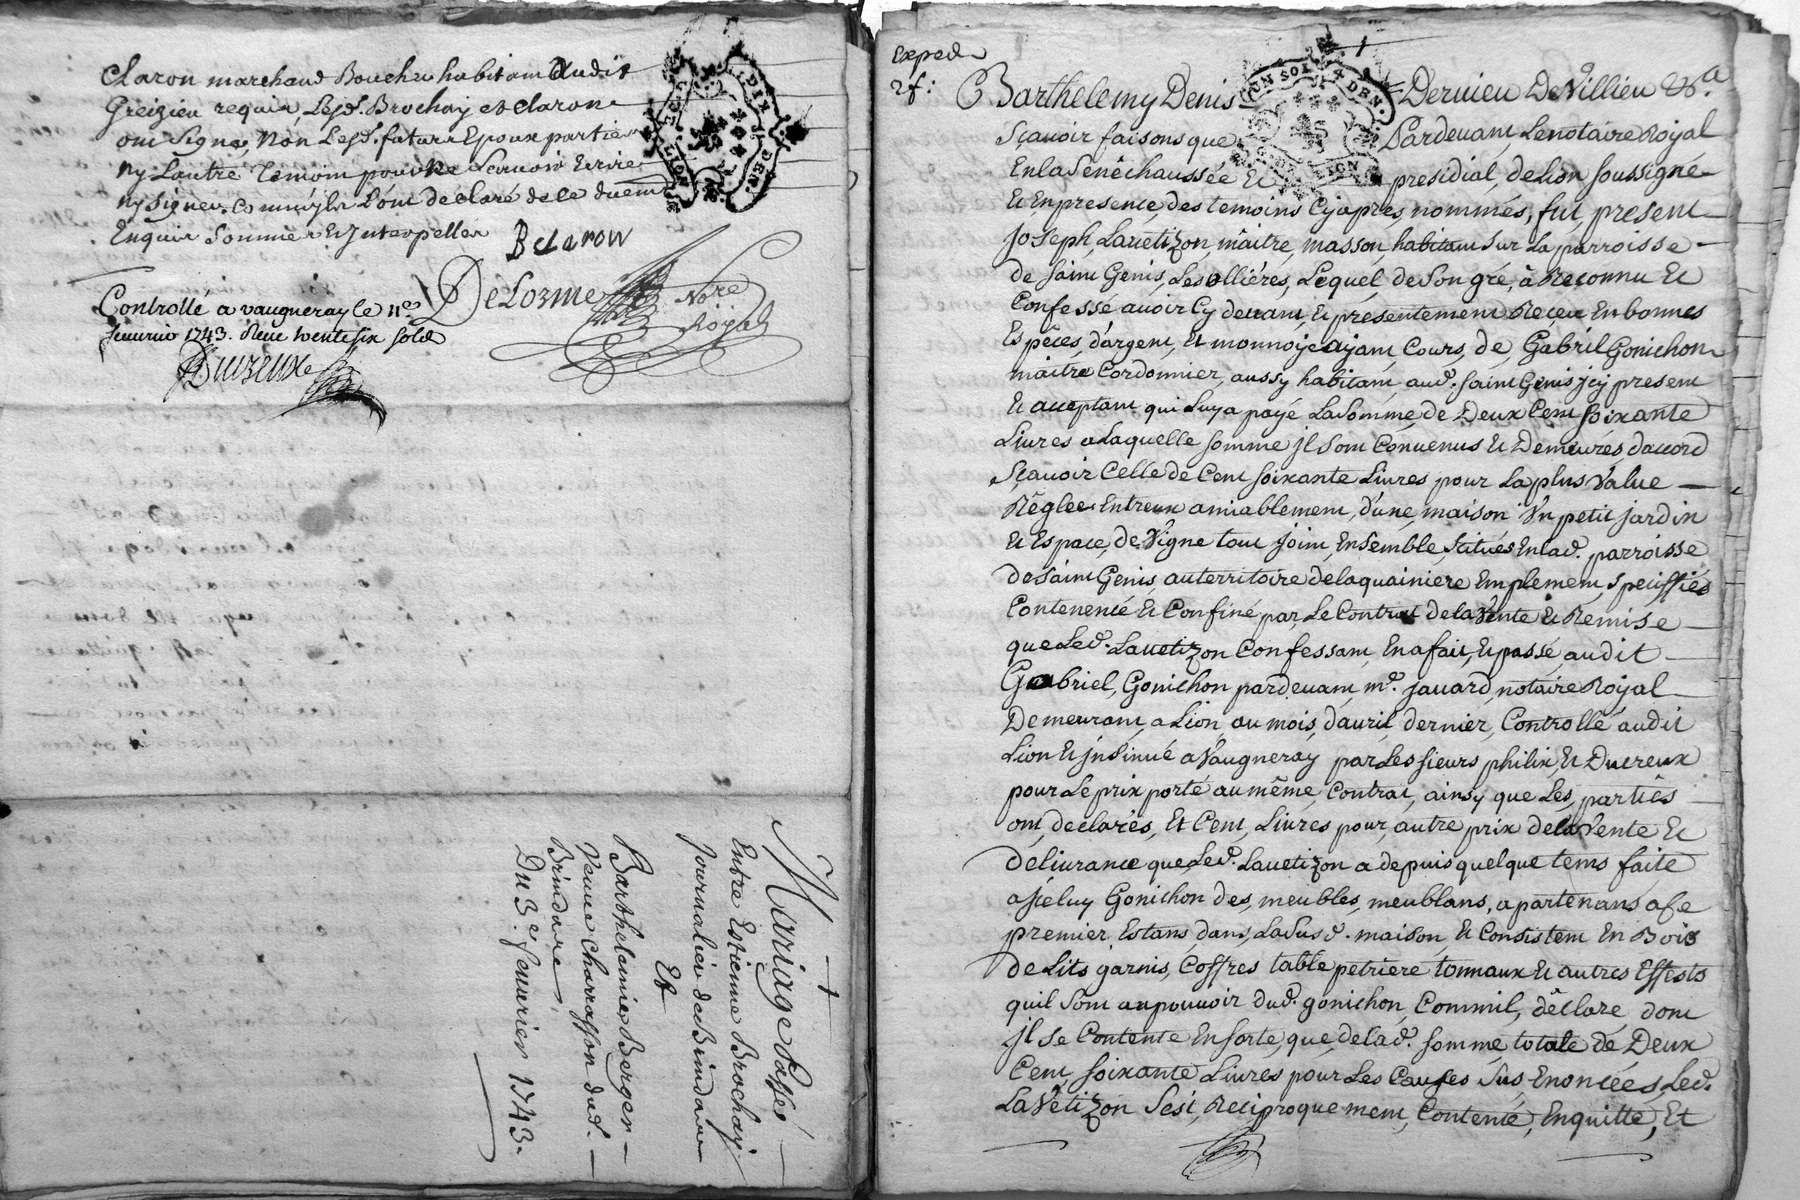 Claron marchand Boucher habitant audit
Greizieu requis, Lesd. Brochaÿ et claron
ont signé, Non Lesd. futurs Epoux parties
ny Lautre Temoin pour ne Scavoir Ecrire
ny signer, comm'jls L'ont declaré de ce duem.t
Enquis Sommés & Interpellés
B claron
DeLorme Nore
Royal
Controllé a vaugneray le 11e
feuvrier 1743. Recu trente six sols
Ducreux
Mariage Passé
Entre Estienne Brochaÿ
Journalier de Brindare
Et
Barthelemie Berger
Veuve Charrasson dud.
Brindare,
Du 3e. feuvrier 1743.
UN SOL 4 DEN.
G. DE LION
DIX DEN
LION
exped
2 f:
Barthelemy Denis Dervieu De Villieu &a
Sçauoir faisons que Pardeuant Le notaire Royal
En la Senêchaussée Et presidial, de Lion soussigné
Et En presence, des temoins Cy apres, nommés, fut present
Joseph, Lauetizon, maitre, masson, habitant sur La parroisse
de saint Genis, Les ollières, Lequel, de son gré, à Reconnu Et
Confessé auoir Cy deuant, Et presentement Reçeu En bonnes
Espêces, d'argent, Et monnoÿe aÿant Cours, de, Gabriël Gonichon
maitre Cordonnier, aussy habitant aud. saint Genis jcÿ present
Et acceptant qui Luy a payé La somme, de Deux Cent soixante
Livres a Laquelle somme jls ont Conuenus Et Demeurés, d'accord
Sçauoir Celle de Cent soixante Liures pour La plus Value
Rêglee Entreux amiablement, d'une, maison Vn petit jardin
Et Espace, de Vigne tout joint Ensemble, Scitués En lad. parroisse
de saint Genis, au territoire de la quainiere Emplement, speciffiés
Contenence & Confiné par, Le Contrat de la Vente & Remise
que Led. Lauetizon Confessant, En a fait, Et passé audit
Gabriel, Gonichon pardeuant, me. jauard, notaire Roÿal
Demeurant a Lion, au mois, d'auril, dernier, Controllé audit
Lion Et jnsinué a Vaugneray par Les sieurs philix, Et Ducreux
pour Le prix porté au même, Contrat, ainsy que Les, partiês
ont, declarés, Et Cent, Livres pour, autre prix de la Vente Et
deliurance que, Led. Lauetizon a depuis quelque tems faite
a jceluy Gonichon des, meubles, meublans, apartenans a Ce
premier Estans dans, La susd. maison, Et Consistent En Bois
de Lits garnis, Coffres table petriere tonnaux Et autres Effests
quil sont au pouuoir dud. gonichon, Comm'il, dêclare dont
jl se Contente En sorte, que, de lad. somme totale de Deux
Cent, soixante Liures pour Les Causes Sus Enoncées, Led.
La Vetizon Sest, Reciproquement, Contenté, Enquitte, Et